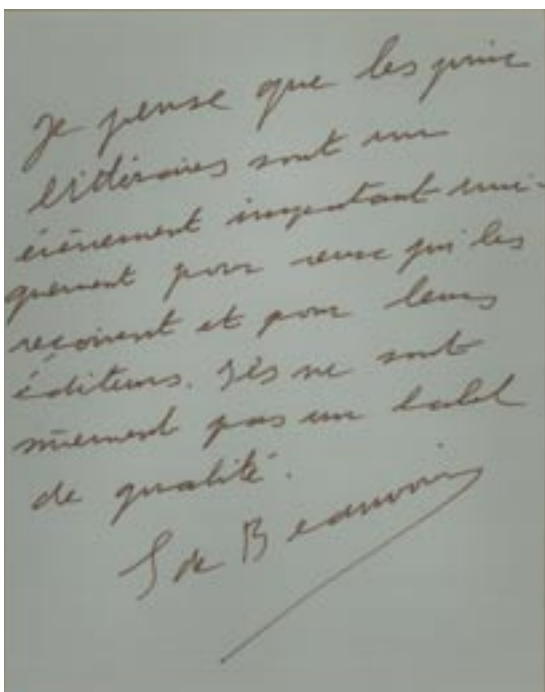 Je pense que les prix
littéraires sont un
évènement important uni-
quement pour ceux qui les
reçoivent et pour leurs
éditeurs. Ils ne sont
sûrement pas un label
de qualité.
S de Beauvoir